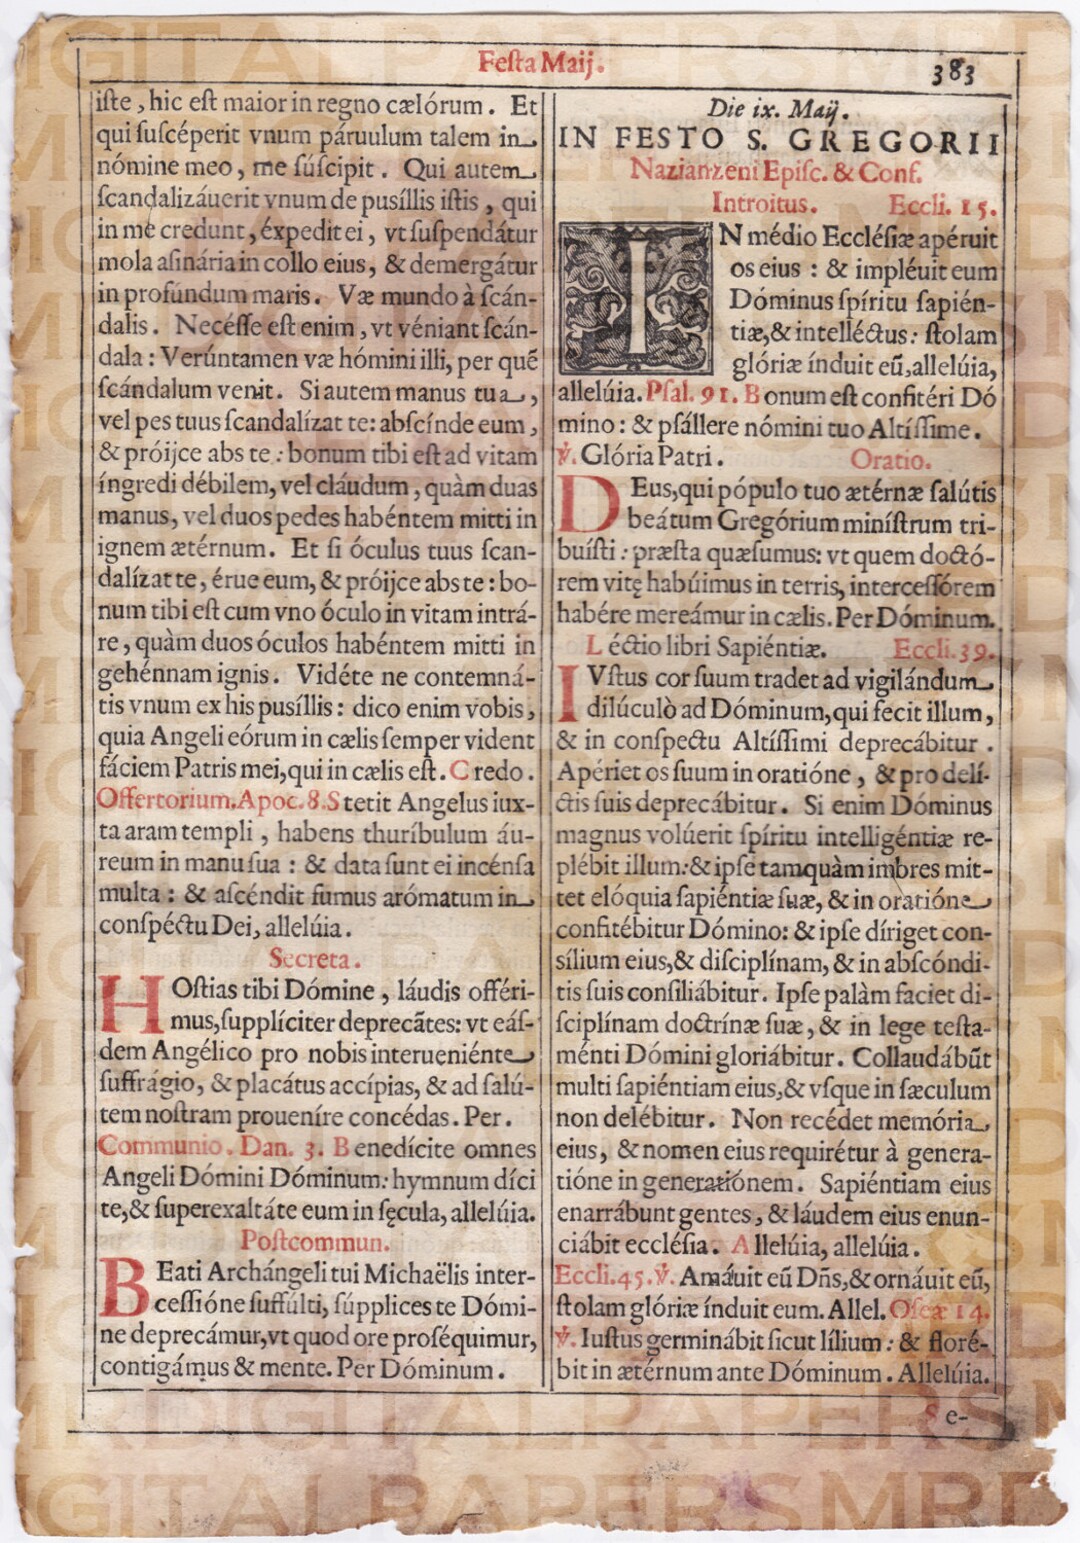 Festa Maij.
383
iste, hic est maior in regno cælórum. Et
qui suscéperit vnum páruulum talem in
nómine meo, me súscipit. Qui autem
scandalizáuerit vnum de pusíllis istis, qui
in me credunt, éxpedit ei, vt suspendátur
mola asinária in collo eius, & demergátur
in profúndum maris. Væ mundo à scán-
dalis. Necésse est enim, vt véniant scán-
dala: Verúntamen væ hómini illi, per quẽ
scándalum venit. Si autem manus tua,
vel pes tuus scandalízat te: abscínde eum,
& próijce abs te: bonum tibi est ad vitam
íngredi débilem, vel cláudum, quàm duas
manus, vel duos pedes habéntem mitti in
ignem ætérnum. Et si óculus tuus scan-
dalízat te, érue eum, & próijce abs te: bo-
num tibi est cum vno óculo in vitam intrá-
re, quàm duos óculos habéntem mitti in
gehénnam ignis. Vidéte ne contemná-
tis vnum ex his pusíllis: dico enim vobis,
quia Angeli eórum in cælis semper vident
fáciem Patris mei, qui in cælis est. Credo.
Offertorium. Apoc. 8. Stetit Angelus iux-
ta aram templi, habens thuríbulum áu-
reum in manu sua: & data sunt ei incénsa
multa: & ascéndit fumus arómatum in
conspéctu Dei, allelúia.
Secreta.
HOstias tibi Dómine, láudis offéri-
mus, supplíciter deprecãtes: vt eás-
dem Angélico pro nobis interueniénte
suffrágio, & placátus accípias, & ad salú-
tem nostram proueníre concédas. Per.
Communio. Dan. 3. Benedícite omnes
Angeli Dómini Dóminum: hymnum díci
te, & superexaltáte eum in sęcula, allelúia.
Postcommun.
BEati Archángeli tui Michaëlis inter-
cessióne suffúlti, súpplices te Dómi-
ne deprecámur, vt quod ore proséquimur,
contigámus & mente. Per Dóminum.
Die ix. Maij.
IN FESTO S. GREGORII
Nazianzeni Episc. & Conf.
Introitus. Eccli. 15.
IN médio Ecclésiæ apéruit
os eius: & impléuit eum
Dóminus spíritu sapién-
tiæ, & intelléctus: stolam
glóriæ índuit eũ, allelúia,
allelúia. Psal. 91. Bonum est confitéri Dó
mino: & psállere nómini tuo Altíssime.
℣. Glória Patri. Oratio.
DEus, qui pópulo tuo ætérnæ salútis
beátum Gregórium minístrum tri-
buísti: præsta quæsumus: vt quem doctó-
rem vitę habúimus in terris, intercessórem
habére mereámur in cælis. Per Dóminum.
Léctio libri Sapiéntiæ. Eccli. 39.
IVstus cor suum tradet ad vigilándum
dilúculò ad Dóminum, qui fecit illum,
& in conspectu Altíssimi deprecábitur.
Apériet os suum in oratióne, & pro delí-
ctis suis deprecábitur. Si enim Dóminus
magnus volúerit spíritu intelligéntiæ re-
plébit illum: & ipse tamquàm imbres mit-
tet elóquia sapiéntiæ suæ, & in oratióne
confitébitur Dómino: & ipse díriget con-
sílium eius, & disciplínam, & in abscóndi-
tis suis consiliábitur. Ipse palàm faciet di-
sciplínam doctrínæ suæ, & in lege testa-
ménti Dómini gloriábitur. Collaudábũt
multi sapiéntiam eius, & vsque in sæculum
non delébitur. Non recédet memória
eius, & nomen eius requirétur à genera-
tióne in generatiónem. Sapiéntiam eius
enarrábunt gentes, & láudem eius enun-
ciábit ecclésia. Allelúia, allelúia.
Eccli. 45. ℣. Amáuit eũ Dñs, & ornáuit eũ,
stolam glóriæ índuit eum. Allel. Oseæ 14.
℣. Iustus germinábit sicut lílium: & floré-
bit in ætérnum ante Dóminum. Allelúia.
Se-